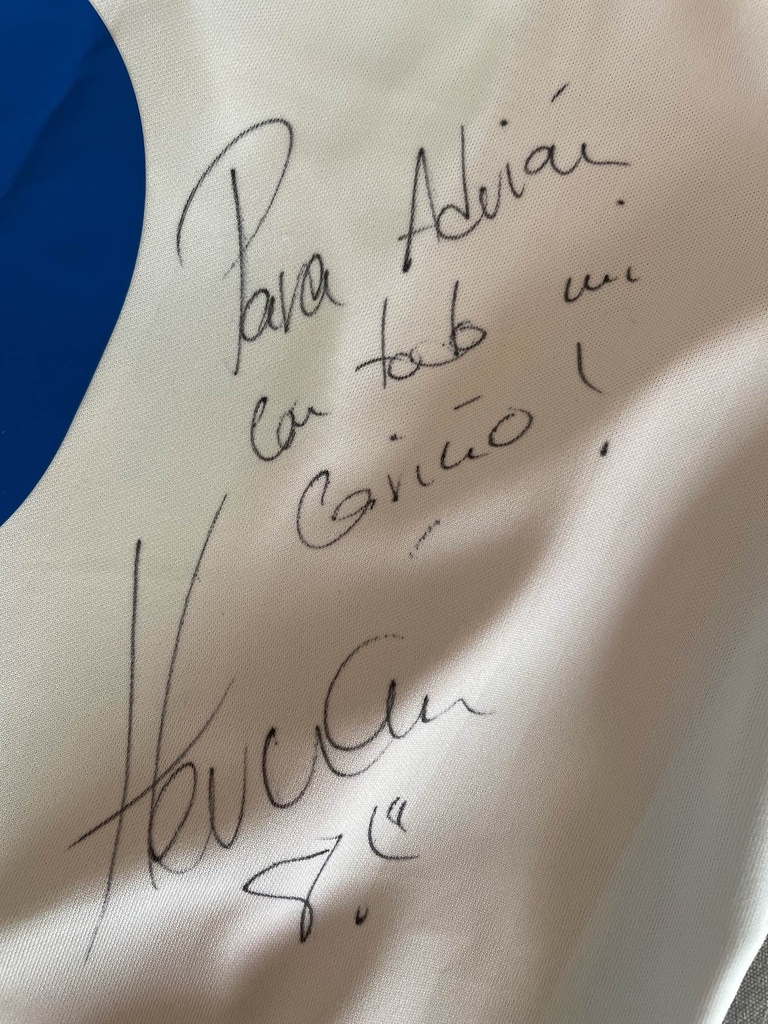 Para Adrián
con todo mi
Cariño!
8.